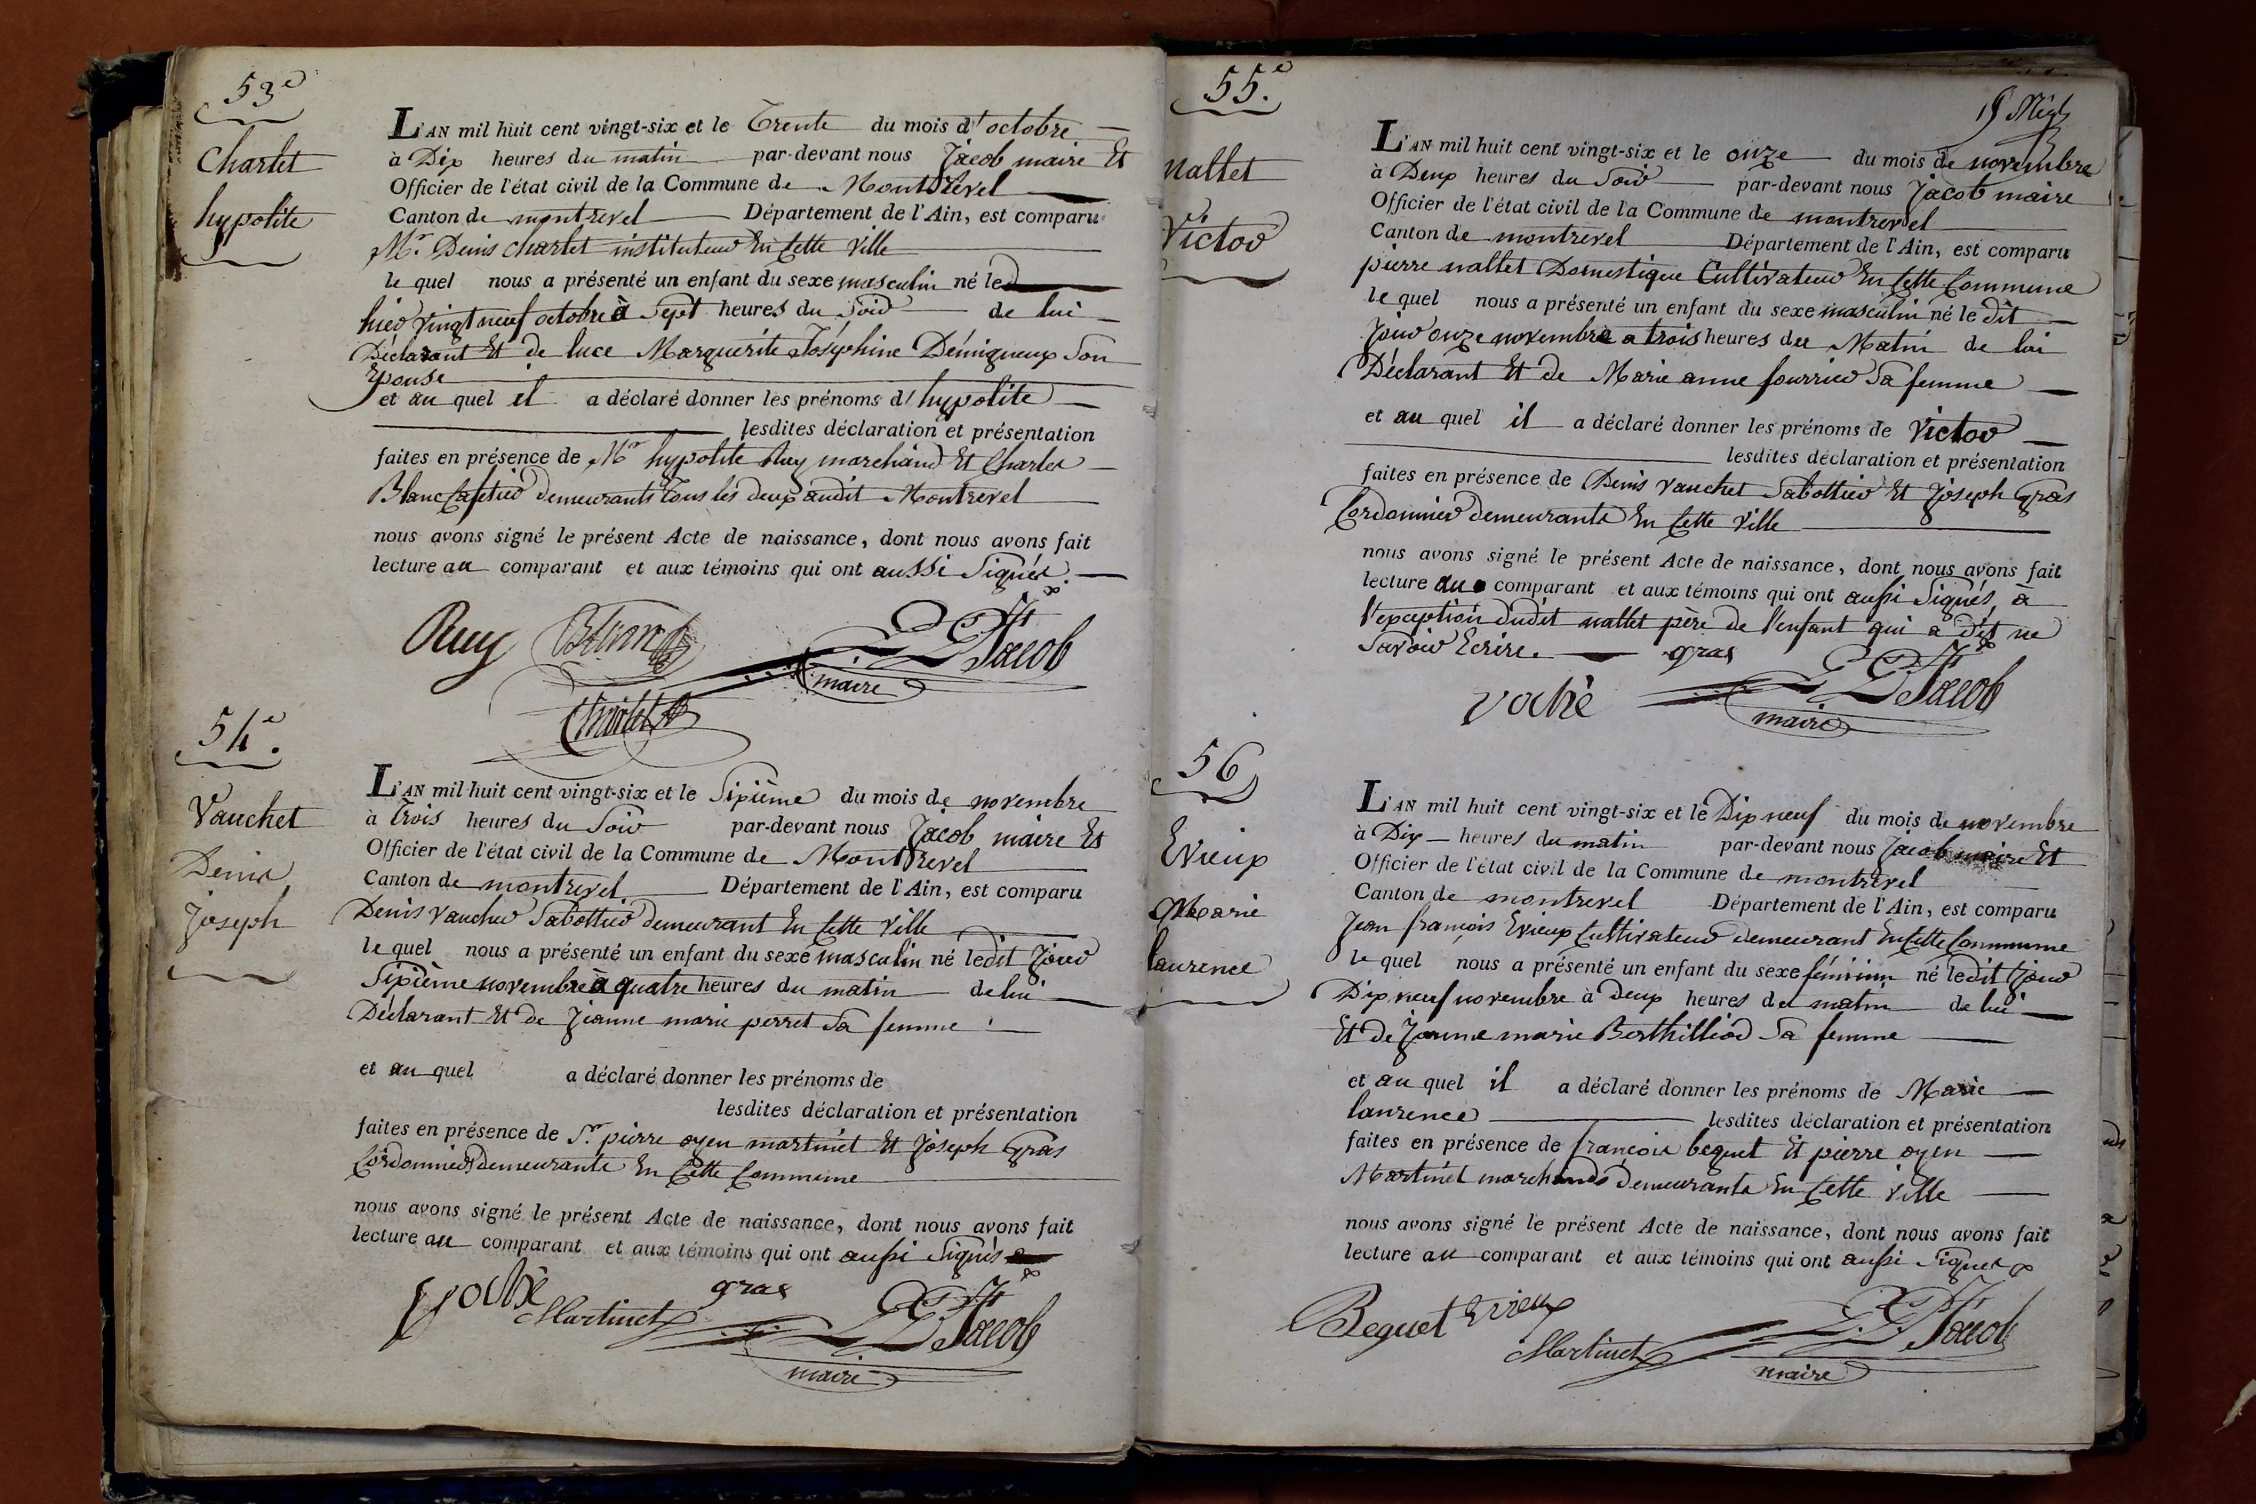 53e
Charlet
hypolite
L'AN mil huit cent vingt-six et le Trente du mois d'octobre
à Dix heures du matin par-devant nous Jacob maire Et
Officier de l'état civil de la Commune de Montrevel
Canton de montrevel Département de l'Ain, est comparu
Mr. Denis Charlet instituteur En Cette ville
le quel nous a présenté un enfant du sexe masculin né le
hier vingt neuf octobre à Sept heures du Soir de lui
Déclarant Et de luce Marguerite Joséphine Démigneux Son
Epouse
et au quel il a déclaré donner les prénoms d'hypolite
lesdites déclaration et présentation
faites en présence de Mr hypolite Ruy marchand Et Charles
Blanc Cafetier demeurants Tous les deux audit Montrevel
nous avons signé le présent Acte de naissance, dont nous avons fait
lecture au comparant et aux témoins qui ont aussi Signés.
Ruy Jacob
maire
Charlet
54e.
Vauchet
Denis
Joseph
L'AN mil huit cent vingt-six et le Sixième du mois de novembre
à Trois heures du Soir par-devant nous Jacob maire Et
Officier de l'état civil de la Commune de Montrevel
Canton de montrevel Département de l'Ain, est comparu
Denis Vaucher Sabottier demeurant En Cette ville
le quel nous a présenté un enfant du sexe masculin né ledit Jour
Sixième novembre à quatre heures du matin de lui
Déclarant Et de Jeanne marie perret Sa femme
et au quel a déclaré donner les prénoms de
lesdites déclaration et présentation
faites en présence de Sr. pierre oyen martinet Et Joseph Gras
Cordonniers demeurants En Cette Commune
nous avons signé le présent Acte de naissance, dont nous avons fait
lecture au comparant et aux témoins qui ont aussi Signés
Voché Martinet gras Jacob
maire
55e.
Nallet
Victor
L'AN mil huit cent vingt-six et le onze du mois de novembre
à Deux heures du Soir par-devant nous Jacob maire
Officier de l'état civil de la Commune de montrevel
Canton de montrevel Département de l'Ain, est comparu
pierre nallet Domestique Cultivateur En Cette Commune
le quel nous a présenté un enfant du sexe masculin né le dit
Jour onze novembre a trois heures du Matin de lui
Déclarant Et de Marie anne fourrier Sa femme
et au quel il a déclaré donner les prénoms de Victor
lesdites déclaration et présentation
faites en présence de Denis Vauchet Sabottier Et Joseph Gras
Cordonnier demeurants En Cette Ville
nous avons signé le présent Acte de naissance, dont nous avons fait
lecture au comparant et aux témoins qui ont aussi Signés, à
l'exception dudit nallet père de l'enfant qui a dit ne
Savoir Ecrire.
gras
Voché Jacob
maire
56
Evieux
Marie
laurence
L'AN mil huit cent vingt-six et le Dix neuf du mois de novembre
à Dix heures du matin par-devant nous Jacob maire Et
Officier de l'état civil de la Commune de montrevel
Canton de montrevel Département de l'Ain, est comparu
Jean françois Evieux Cultivateur demeurant En Cette Commune
le quel nous a présenté un enfant du sexe féminin né ledit Jour
Dix neuf novembre à Deux heures du matin de lui
Et de Jeanne marie Berthilliod Sa femme
et au quel il a déclaré donner les prénoms de Marie
laurence lesdites déclaration et présentation
faites en présence de françois beguet Et pierre oyen
Martinet marchands demeurants En Cette Ville
nous avons signé le présent Acte de naissance, dont nous avons fait
lecture au comparant et aux témoins qui ont aussi Signés
Beguet Evieux
Martinet Jacob
maire